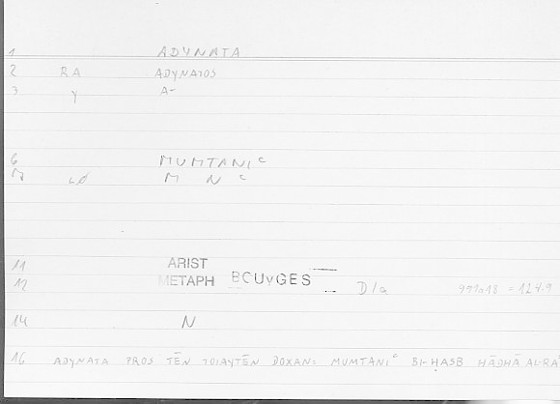 1 ADYNATA
2 RA ADYNATOS
3 Y A-
6 MUMTANIᶜ
7 LØ M N ᶜ
11 ARIST
12 METAPH BOUYGES D/a 991a18 = 124.9
14 N
16 ADYNATA PROS TĒN TOIAYTĒN DOXAN: MUMTANIᶜ BI-ḤASB HĀDHĀ AL-RAʾ